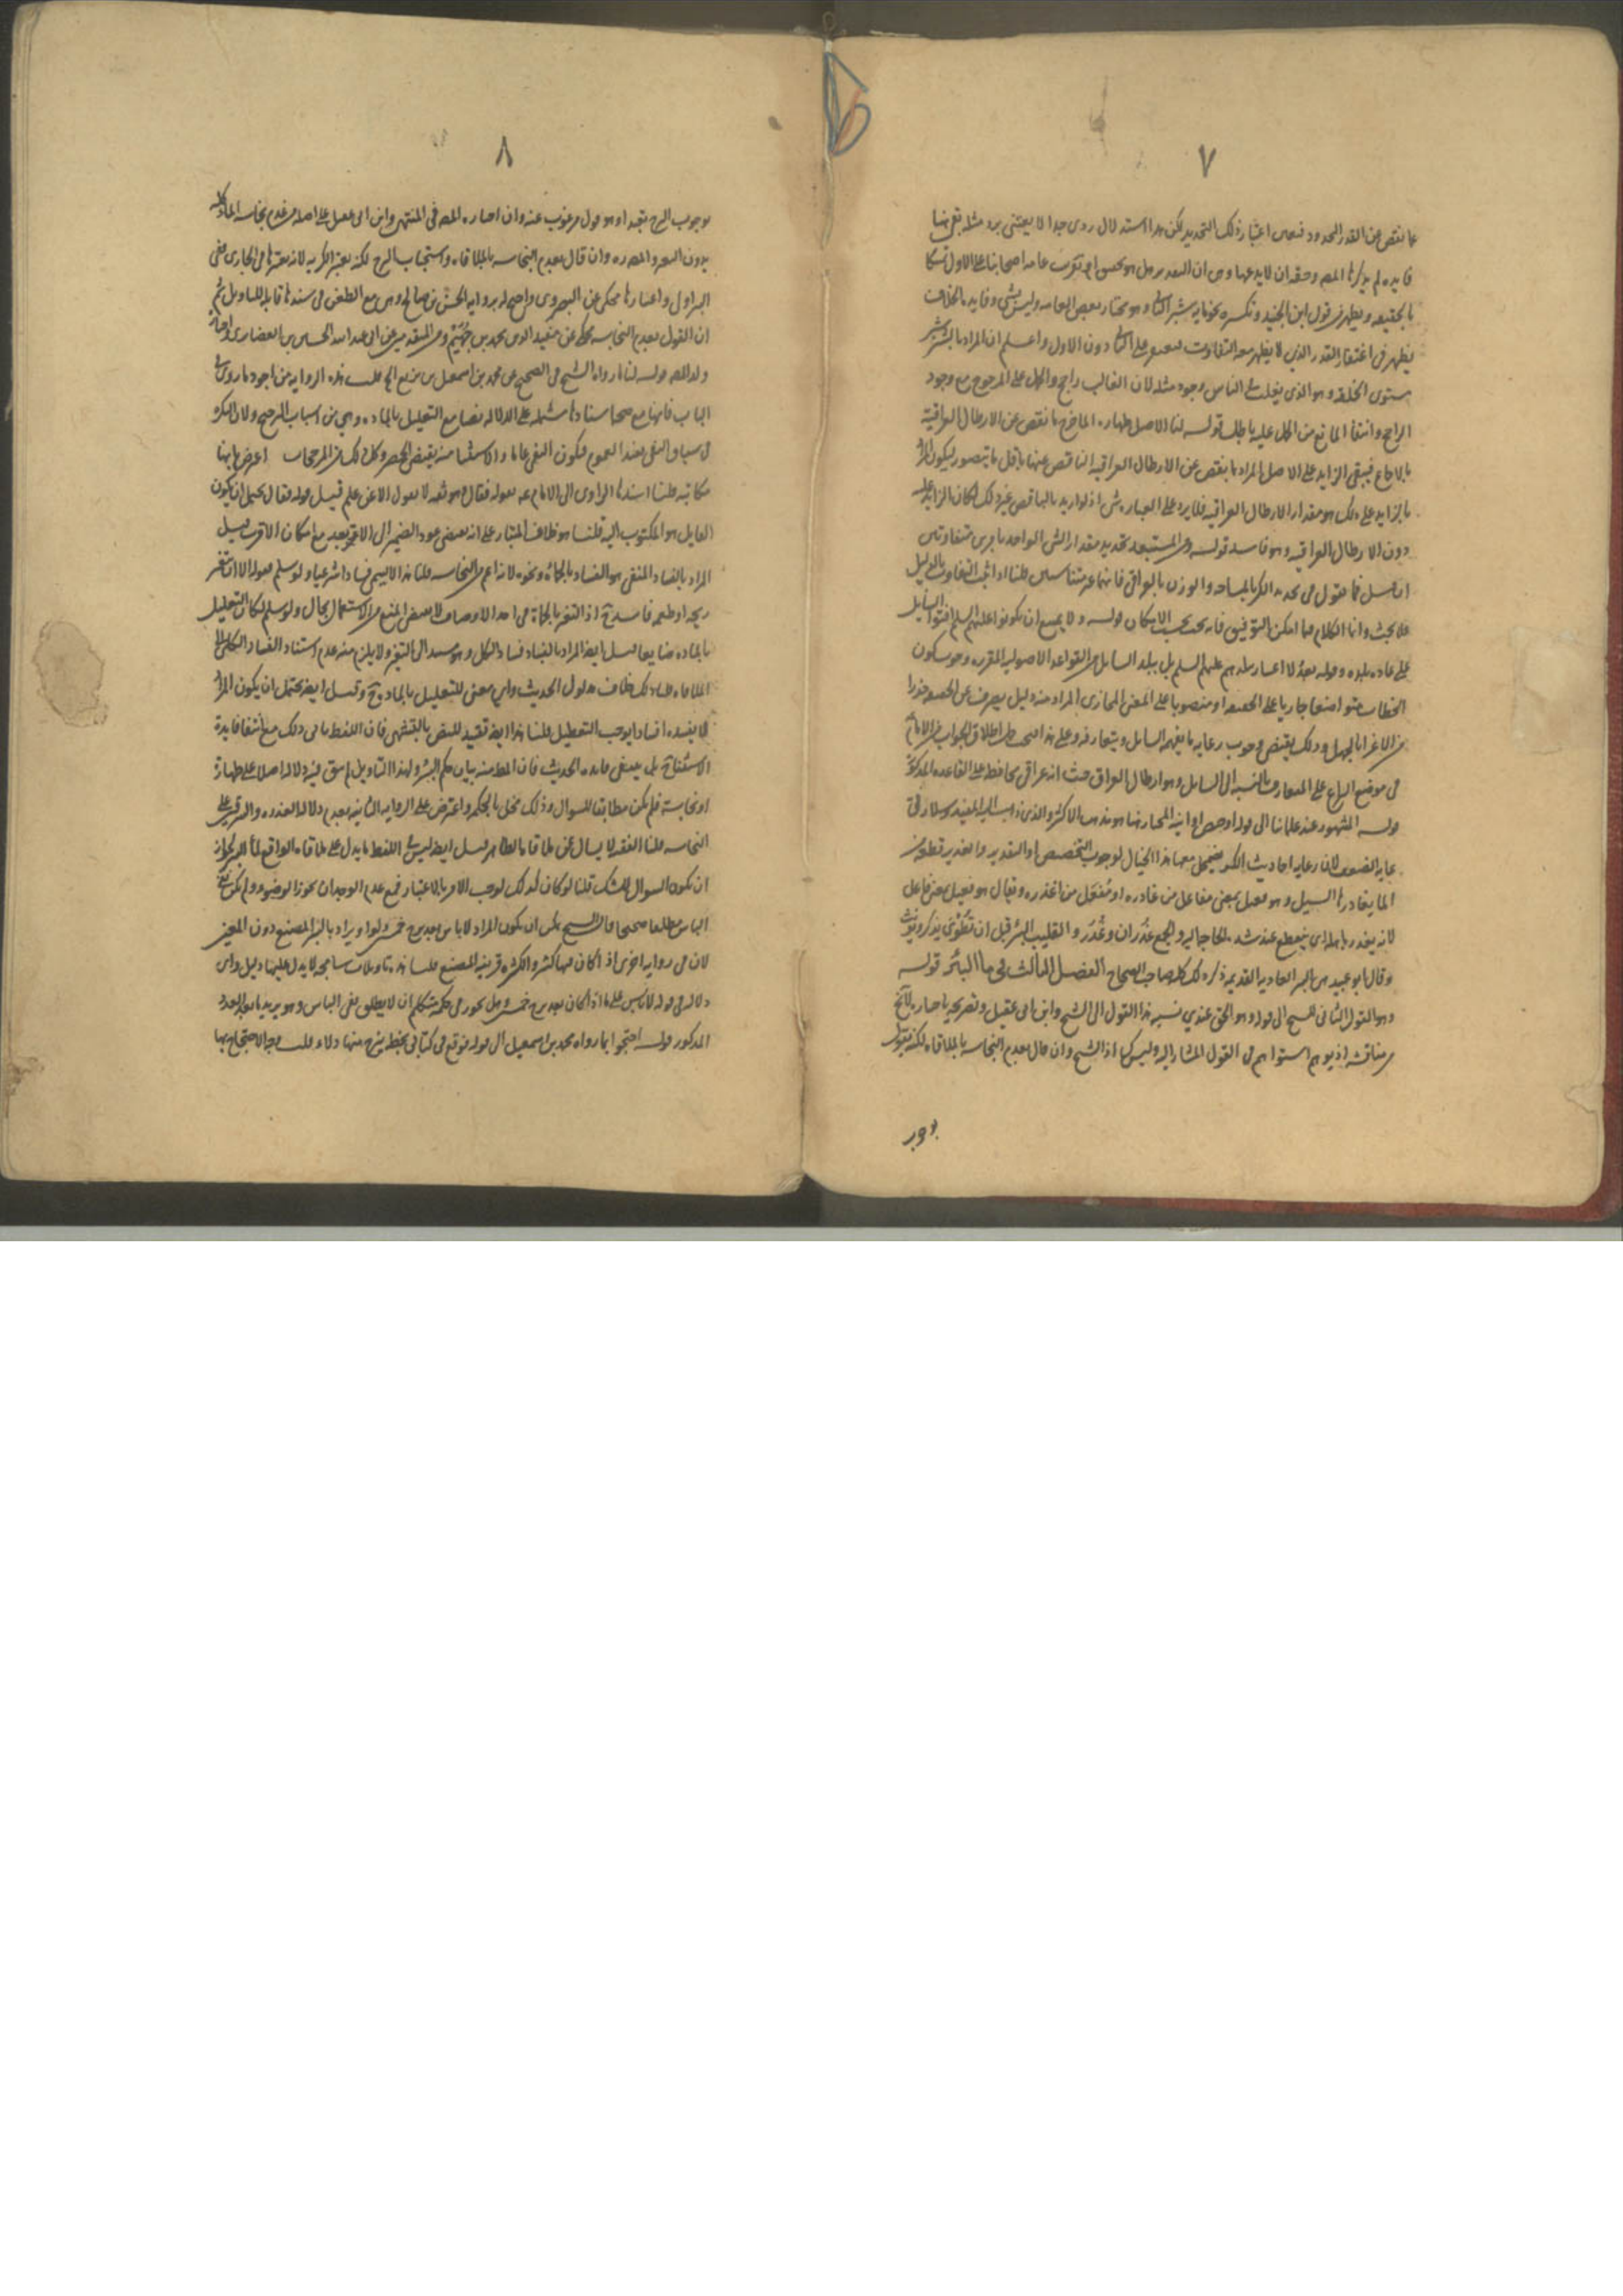 ٧
عما نقص عن القدر المحدود فيعين اعتبار ذلك التحديد لكن هذا استدلال ردى جدا لا يعتنى برد مثله بقى هنا
فايده لم يذكرها المصـ وحقه ان لا يدعها وهى ان التقدير هل هو تحقيق او تقريب عامة اصحابنا على الاول تمسكا
بالحقيقه ويظهر من قول ابن الجنيد وتكسيره نحو مايه شبر الثانى وهو مختار بعض العامه وليس بشى وفايده الخلاف
يظهر فى اغتفار القدر الذى لا يظهر معه التفاوت على الثانى دون الاول واعلم ان المراد بالشبر شبر
مستوى الخلقه وهو الذى يغلب فى الناس وجود مثله لان الغالب راجح والحمل على المرجوح مع وجود
الراجح وانتفا المانع من الحمل عليه باطل قوله لنا الاصل طهاره الما خرج ما نقص عن الارطال العراقية
بالاجماع فيبقى الزايد على الاصل المراد بما ينقص عن الارطال العراقيه الناقص عنها باقل ما يتصور ليكون المراد
بالزايد على ذلك هو مقدار الارطال العراقيه فلا يرد على العباره شى اذ لو اريد بالناقص غير ذلك لكان الزايد عليه
دون الارطال العراقيه وهو فاسد قوله ومن المستبعد تحديد مقدار الشى الواحد بامرين متفاوتين
ان قيل فما تقول فى تحديد الكر بالمساحه والوزن بالعراقى فانهما غير متناسبين قلنا اذا ثبت التفاوت بالدليل
فلا بحث وانما الكلام فيما امكن التوفيق فانه يجب بحسب الامكان قوله ولا يمتنع ان يكونوا عليهم السلم افتوا السايل
على عاده بلده وقوله بعد لا اعتبار ببلدهم عليهم السلم بل ببلد السايل من القواعد الاصوليه المقرره وجوب كون
الخطاب متواضعا جاريا على الحقيقه او منصوبا على المعنى المجازى المراد منه دليل يصرف عن الحقيقه حذرا
من الاغرا بالجهل وذلك يقتضى وجوب رعايه ما يفهمه السايل ويتعارفه وعلى هذا يجب حمل اطلاق الجواب من الامام
فى موضع النزاع على المتعارف بالنسبه الى السايل وهو ارطال العراق حيث انه عراقى محافظه على القاعده المذكورة
قوله المشهور عند علمائنا الى قوله او حوض او انيه المختار هنا هو مذهب الاكثر والذى ذهب اليه المفيد وسلار فى
غايه الضعف لان رعايه احاديث الكر يضمحل معها هذا الخيال لوجوب التخصيص او التقدير والغدير قطعه من
الما يغادرها السيل وهو فعيل بمعنى مفاعل من غادره او مفعل من اغدره ويقال هو فعيل بمعنى فاعل
لانه يغدر باهله اى ينقطع عند شده الحاجه اليه والجمع غدران وغدر والقليب البئر قبل ان تطوى يذكر ويونث
وقال ابو عبيد هى البئر العاديه القديمه ذكر ذلك كله صاحب الصحاح الفصل الثالث فى ماء البئر قوله
وهو القول الثانى للشيخ الى قوله وهو الحق عندى نسبه هذا القول الى الشيخ وابن ابى عقيل وتصريحه باختياره لا يخ
من مناقشه اذ يوهم استواهم فى القول المشار اليه وليس كذا اذ الشيخ وان قال بعدم النجاسه بالملاقاه لكنه يقول
بوجوب
٨
بوجوب النزح تعبدا وهو قول مرغوب عنه وان اختاره المصـ فى المنتهى وابن ابى عقيل على اصله من عدم نجاسه الماء كله
بدون التغير والمصـ ره وان قال بعدم النجاسه بالملاقاه واستحباب النزح لكنه يعتبر الكريه لانه يعتبرها فى الجارى ففى
البير اولى واعتبارها محكى عن البصروى واحتج له بروايه الحسن بن صالح وهى مع الطعن فى سندها قابله للتاويل ثم
ان القول بعدم النجاسه محكى عن مفيد الدين محمد بن جهيم ومن المتقدمين عن ابى عبد الله الحسين بن الغضايرى واختاره
ولد المصـ قوله لنا ما رواه الشيخ فى الصحيح عن محمد بن اسمعيل بن بزيع الخ قلت هذه الروايه من اجود ما روى فى
الباب فانها مع صحه اسنادها مشتمله على الدلاله نصا مع التعليل بالماده وهى من اسباب الترجيح ولان النكره
فى سياق النفى يفيد العموم فيكون النفى عاما والاستثنا منه يقتضى الحصر وكل ذلك من المرجحات اعترض بانها
مكاتبه قلنا اسندها الراوى الى الامام عم بقوله فقال وهو ثقه لا يقول الا عن علم قيل قوله فقال يحتمل ان يكون
القايل هو المكتوب اليه قلنا هو خلاف المتبادر على انه يقتضى عود الضمير الى الابعد مع امكان الاقرب قيل
المراد بالفساد المنفى هو الفساد بالحماة ونحوه لانه اعم من النجاسه قلنا هذا لا يسمى فسادا شرعيا ولو سلم فقوله الا ان يتغير
ريحه او طعمه فاسد ح اذ التغير بالحماة فى احد الاوصاف لا يقتضى المنع من الاستعمال بحال ولو سلم لكان التعليل
بالماده ضايعا قيل ايضا المراد بالفساد فساد الكل وهو مستند الى التغير ولا يلزم منه عدم استناد الفساد الكلى الى
الملاقاه قلنا ذلك خلاف مدلول الحديث واى معنى للتعليل بالماده ح وقيل ايضا يحتمل ان يكون المراد
لا يفسده افسادا يوجب التعطيل قلنا هذا ايضا تقييد للنص بالتشهى فان اللفظ يابى ذلك مع انتفا فايدة
الاستفتاح بل ينتفى فايده الحديث فان المطـ منه بيان حكم البئر ولهذا التاويل لم يبق فيه دلاله اصلا على طهارة
او نجاسة فلم يكن مطابقا للسوال وذلك مخل بالحكمه واعترض على الروايه الثانيه بعدم دلاله العذره والزنبيل على
النجاسه قلنا الفقيه لا يسال عن ملاقاه الطاهر قيل ايضا ليس فى اللفظ ما يدل على ملاقاه الواقع لماء البئر لجواز
ان يكون السوال للشك قلنا لو كان كذلك لوجب الامر بالاعتبار فمع عدم الوجدان يجوز الوضوء ولم يكن نفى
الباس مطلقا صحيحا قال الشيخ يمكن ان يكون المراد لا باس بعد نزح خمسين دلوا ويراد بالبئر المصنع دون المعين
لان فى روايه اخرى اذا كان فيها كثره والكثره قرينه المصنع قلنا هذه تاويلات سامجه لا يدل عليها دليل واى
دلاله فى قوله لا باس على ما اذا كان بعد نزح خمسين وهل يجوز فى حكمه متكلم ان لا يطلق نفى الباس وهو يريد ما بعد العدد
المذكور قوله احتجوا بما رواه محمد بن اسمعيل الى قوله فوقع فى كتابى بخطه ينزح منها دلاء قلت وجه الاحتجاج بها